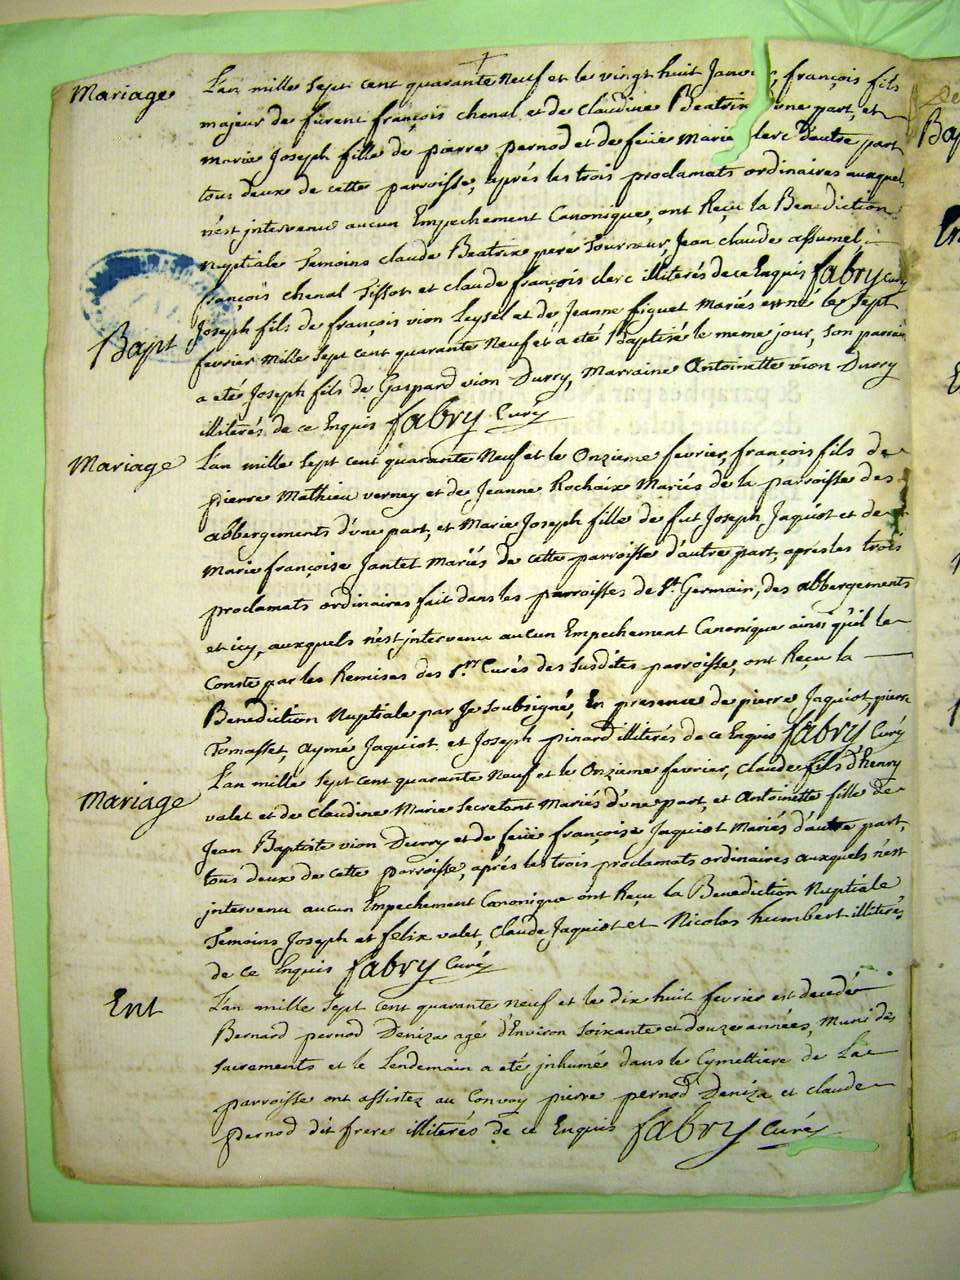 Mariage
L'an mille sept cent quarante neuf et le vingt huit Janvier, françois fils
majeur de fürent françois chenal et de claudine Beatrix d'une part, et
marie Joseph fille de pierre pernod et de feüe Marie clerc d'autre part
tous deux de cette parroisse, après les trois proclamats ordinaires auxquels
n'est jntervenu aucun Empechement Canonique, ont Reçu la Benediction
nuptiale Temoins claude Beatrix pere Jean claude
françois chenal et claude françois clerc illiterés de ce Enquis fabry Curé
Bapt
Joseph fils de françois vion Leysel et de Jeanne figuet Mariés est né le sept
fevrier mille sept cent quarante Neuf et a eté Baptisé le meme jour, son parrain
a eté Joseph fils de Gaspard vion Durry, Marraine Antoinette vion Durry
illiterés de ce Enquis fabry Curé
Mariage
L'an mille sept cent quarante Neuf et le Onzieme fevrier, françois fils de
pierre Mathieu verney et de Jeanne Rochaix Mariés de la parroisse des
abbergements d'une part, et Marie Joseph fille de fut Joseph Jaquiot et de
Marie françoise Jantet Mariés de cette parroisse d'autre part, après les trois
proclamats ordinaires fait dans les parroisses de St. Germain, des abbergements
et icy, auxquels n'est jntervenu aucun Empechement Canonique ainsi qu'il le
Conste par les Remises des Srs. Curés des Susdites parroisse, ont Reçu la
Benediction Nuptiale par Je soubsigné, En presence de pierre Jaquiot, pierre
Tomasset, ayme Jaquiot et Joseph pinard illiterés de ce Enquis fabry Curé
Mariage
L'an mille sept cent quarante Neuf et le Onzieme fevrier, claude fils d'henry
valet et de Claudine Marie Secretant Mariés d'une part, et Antoinette fille de
Jean Baptiste vion Durry et de feüe françoise Jaquiot Mariés d'autre part,
tous deux de cette parroisse, après les trois proclamats ordinaires auxquels n'est
jntervenu aucun Empechement Canonique ont Reçu la Benediction Nuptiale
Temoins Joseph et felix valet, Claude Jaquiot et Nicolas humbert illiterés
de ce Enquis fabry Curé
Ent
L'an mille sept cent quarante neuf et le dix huit fevrier est decedé
Bernard pernod Deniza agé d'Environ soixante et douze années, Muni des
sacrements et le Lendemain a eté jnhumé dans le Cymettiere de La
parroisse ont assistez au Convoy pierre pernod Deniza et claude
pernod dit frere illiterés de ce Enquis fabry Curé